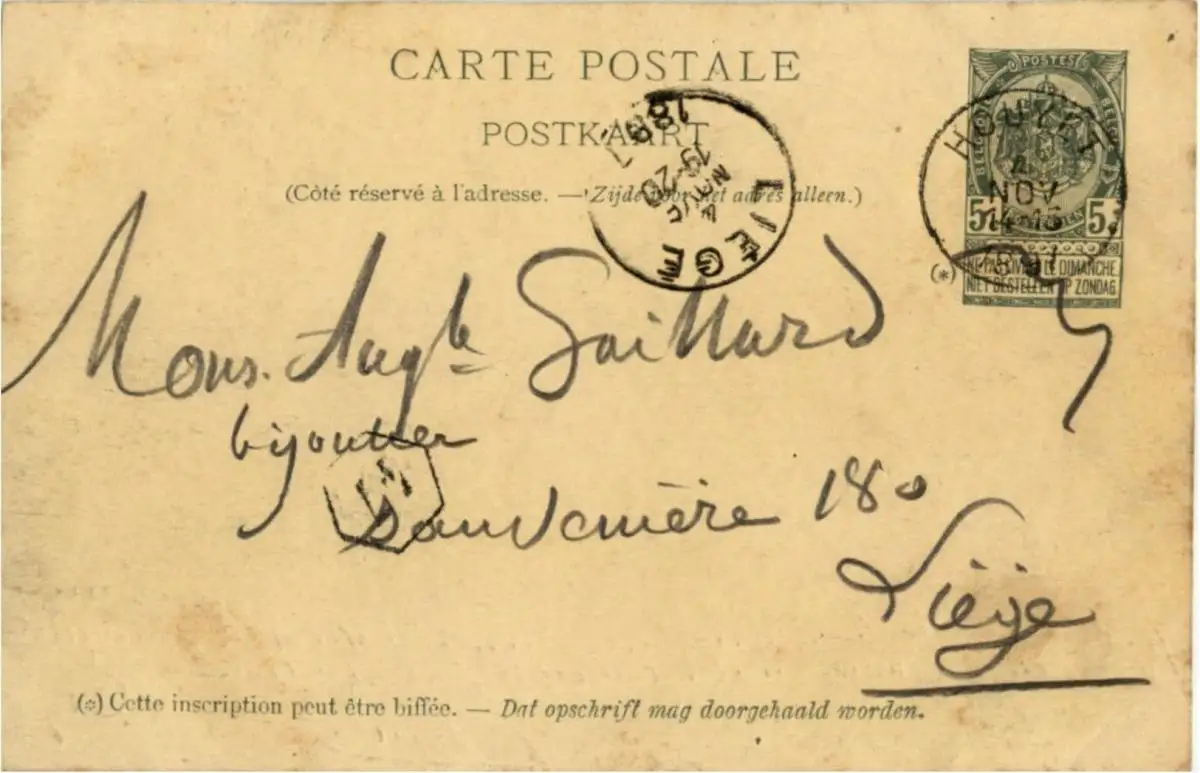 CARTE POSTALE
POSTKAART
(Côté réservé à l'adresse. — Zijde voor het adres alleen.)
POSTES
HOUYET
4
NOV
14-15
LIEGE
19-20
4 NOV
1897
5 5
(*) NE PAS LIVRER LE DIMANCHE
NIET BESTELLEN OP ZONDAG
Mons. Augte Gaillard
bijoutier
Sauvenière 180
Liège
(*) Cette inscription peut être biffée. — Dat opschrift mag doorgehaald worden.